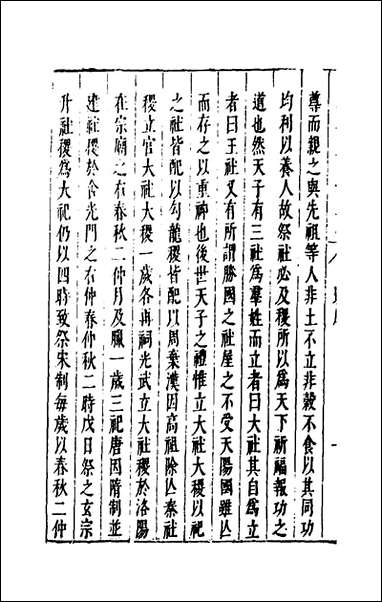 尊而親之與先祖等人非土不立非榖不食以其同功
均利以養人故祭社必及稷所以爲天下祈福報功之
道也然天子有三社爲羣姓而立者曰大社其自爲立
者曰王社又有所謂勝國之社屋之不受天陽國雖亾
而存之以重神也後世天子之禮惟立大社大稷以祀
之社皆配以勾龍稷皆配以周棄漢因高祖除亾秦社
稷立官大社大稷一歲各再祠光武立大社稷於洛陽
在宗廟之右春秋二仲月及臘一歲三祀唐因隋制並
建社稷於含光門之右仲春仲秋二時戊日祭之玄宗
升社稷爲大祀仍以四時致祭宋制每歲以春秋二仲